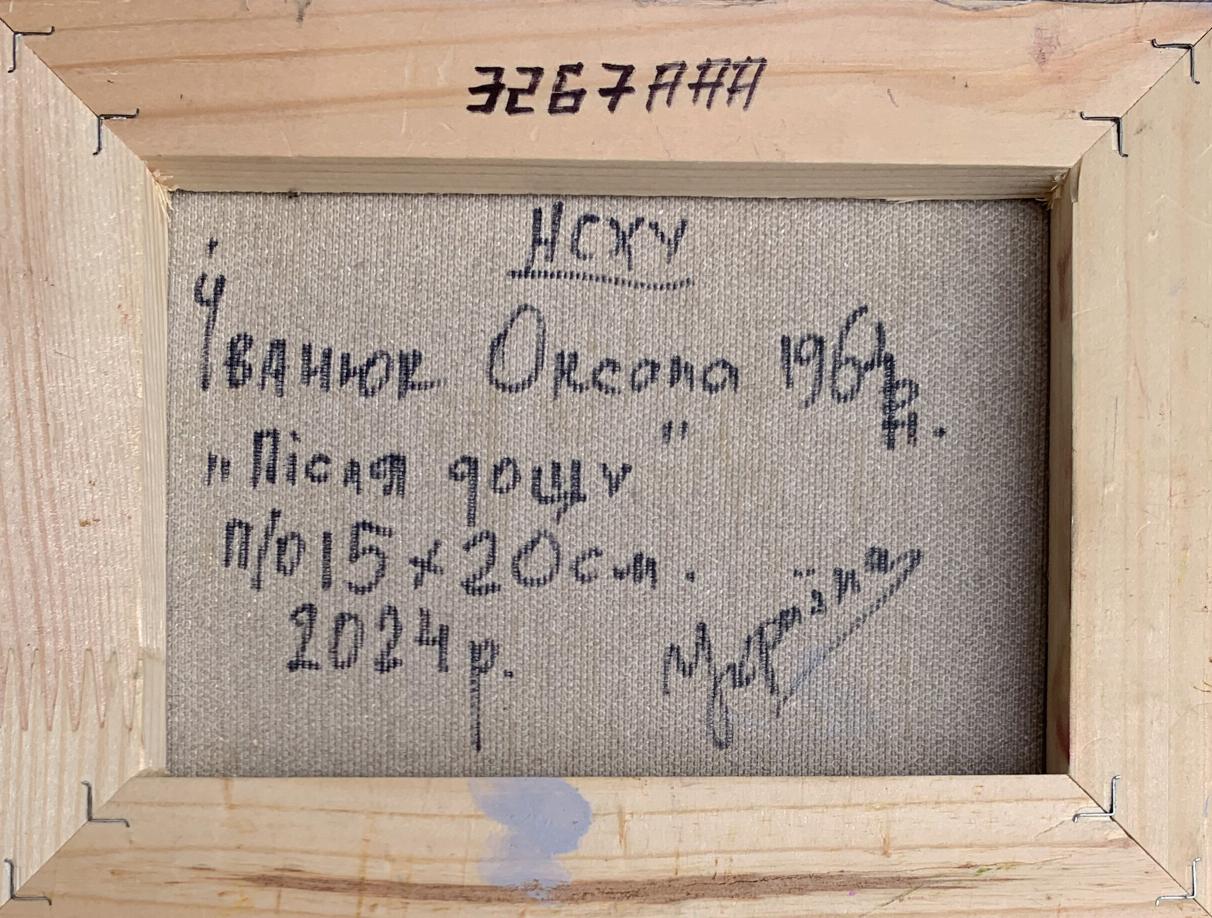 3267ААА
НСХУ
Іванюк Оксана 1961 р.н.
„Після дощу"
п/о 15 х 20 см.
2024 р.